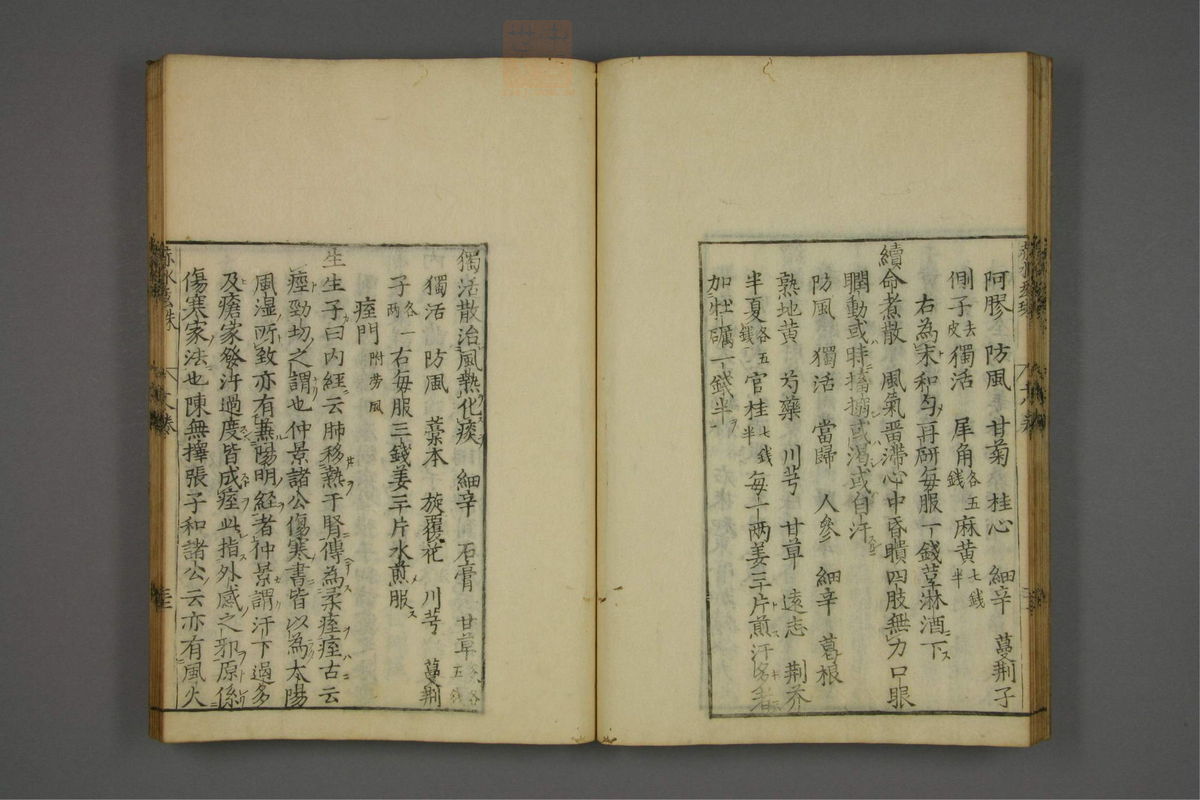 阿膠　防風　甘菊　桂心　細辛　蔓荆子
側子去皮　獨活　犀角各五錢　麻黄七錢半
右為末和勻再研每服一錢葷淋酒下
續命煮散　風氣畱滯心中昏瞶四肢無力口眼
瞤動或時搐搦或渴或自汗
防風　獨活　當歸　人參　細辛　葛根
熟地黄　芍藥　川芎　甘草　遠志　荆芥
半夏各五錢　官桂七錢半　每一两姜三片煎汗多者
加牡礪一錢半
獨活散治風熱化痰　細辛　石膏　甘草各五錢
獨活　防風　藁本　旋覆花　川芎　蔓荆
子各一两　右每服三錢姜三片水煎服
痙門附劳風
生生子曰内經云肺移熱于腎傳為柔痙痙古云
痙勁切之謂也仲景諸公傷寒書皆以為太陽
風湿所致亦有兼陽明経者仲景謂汗下過多
及瘡家發汗過度皆成痙此指外感之邪原係
傷寒家法也陳無擇張子和諸公云亦有風火